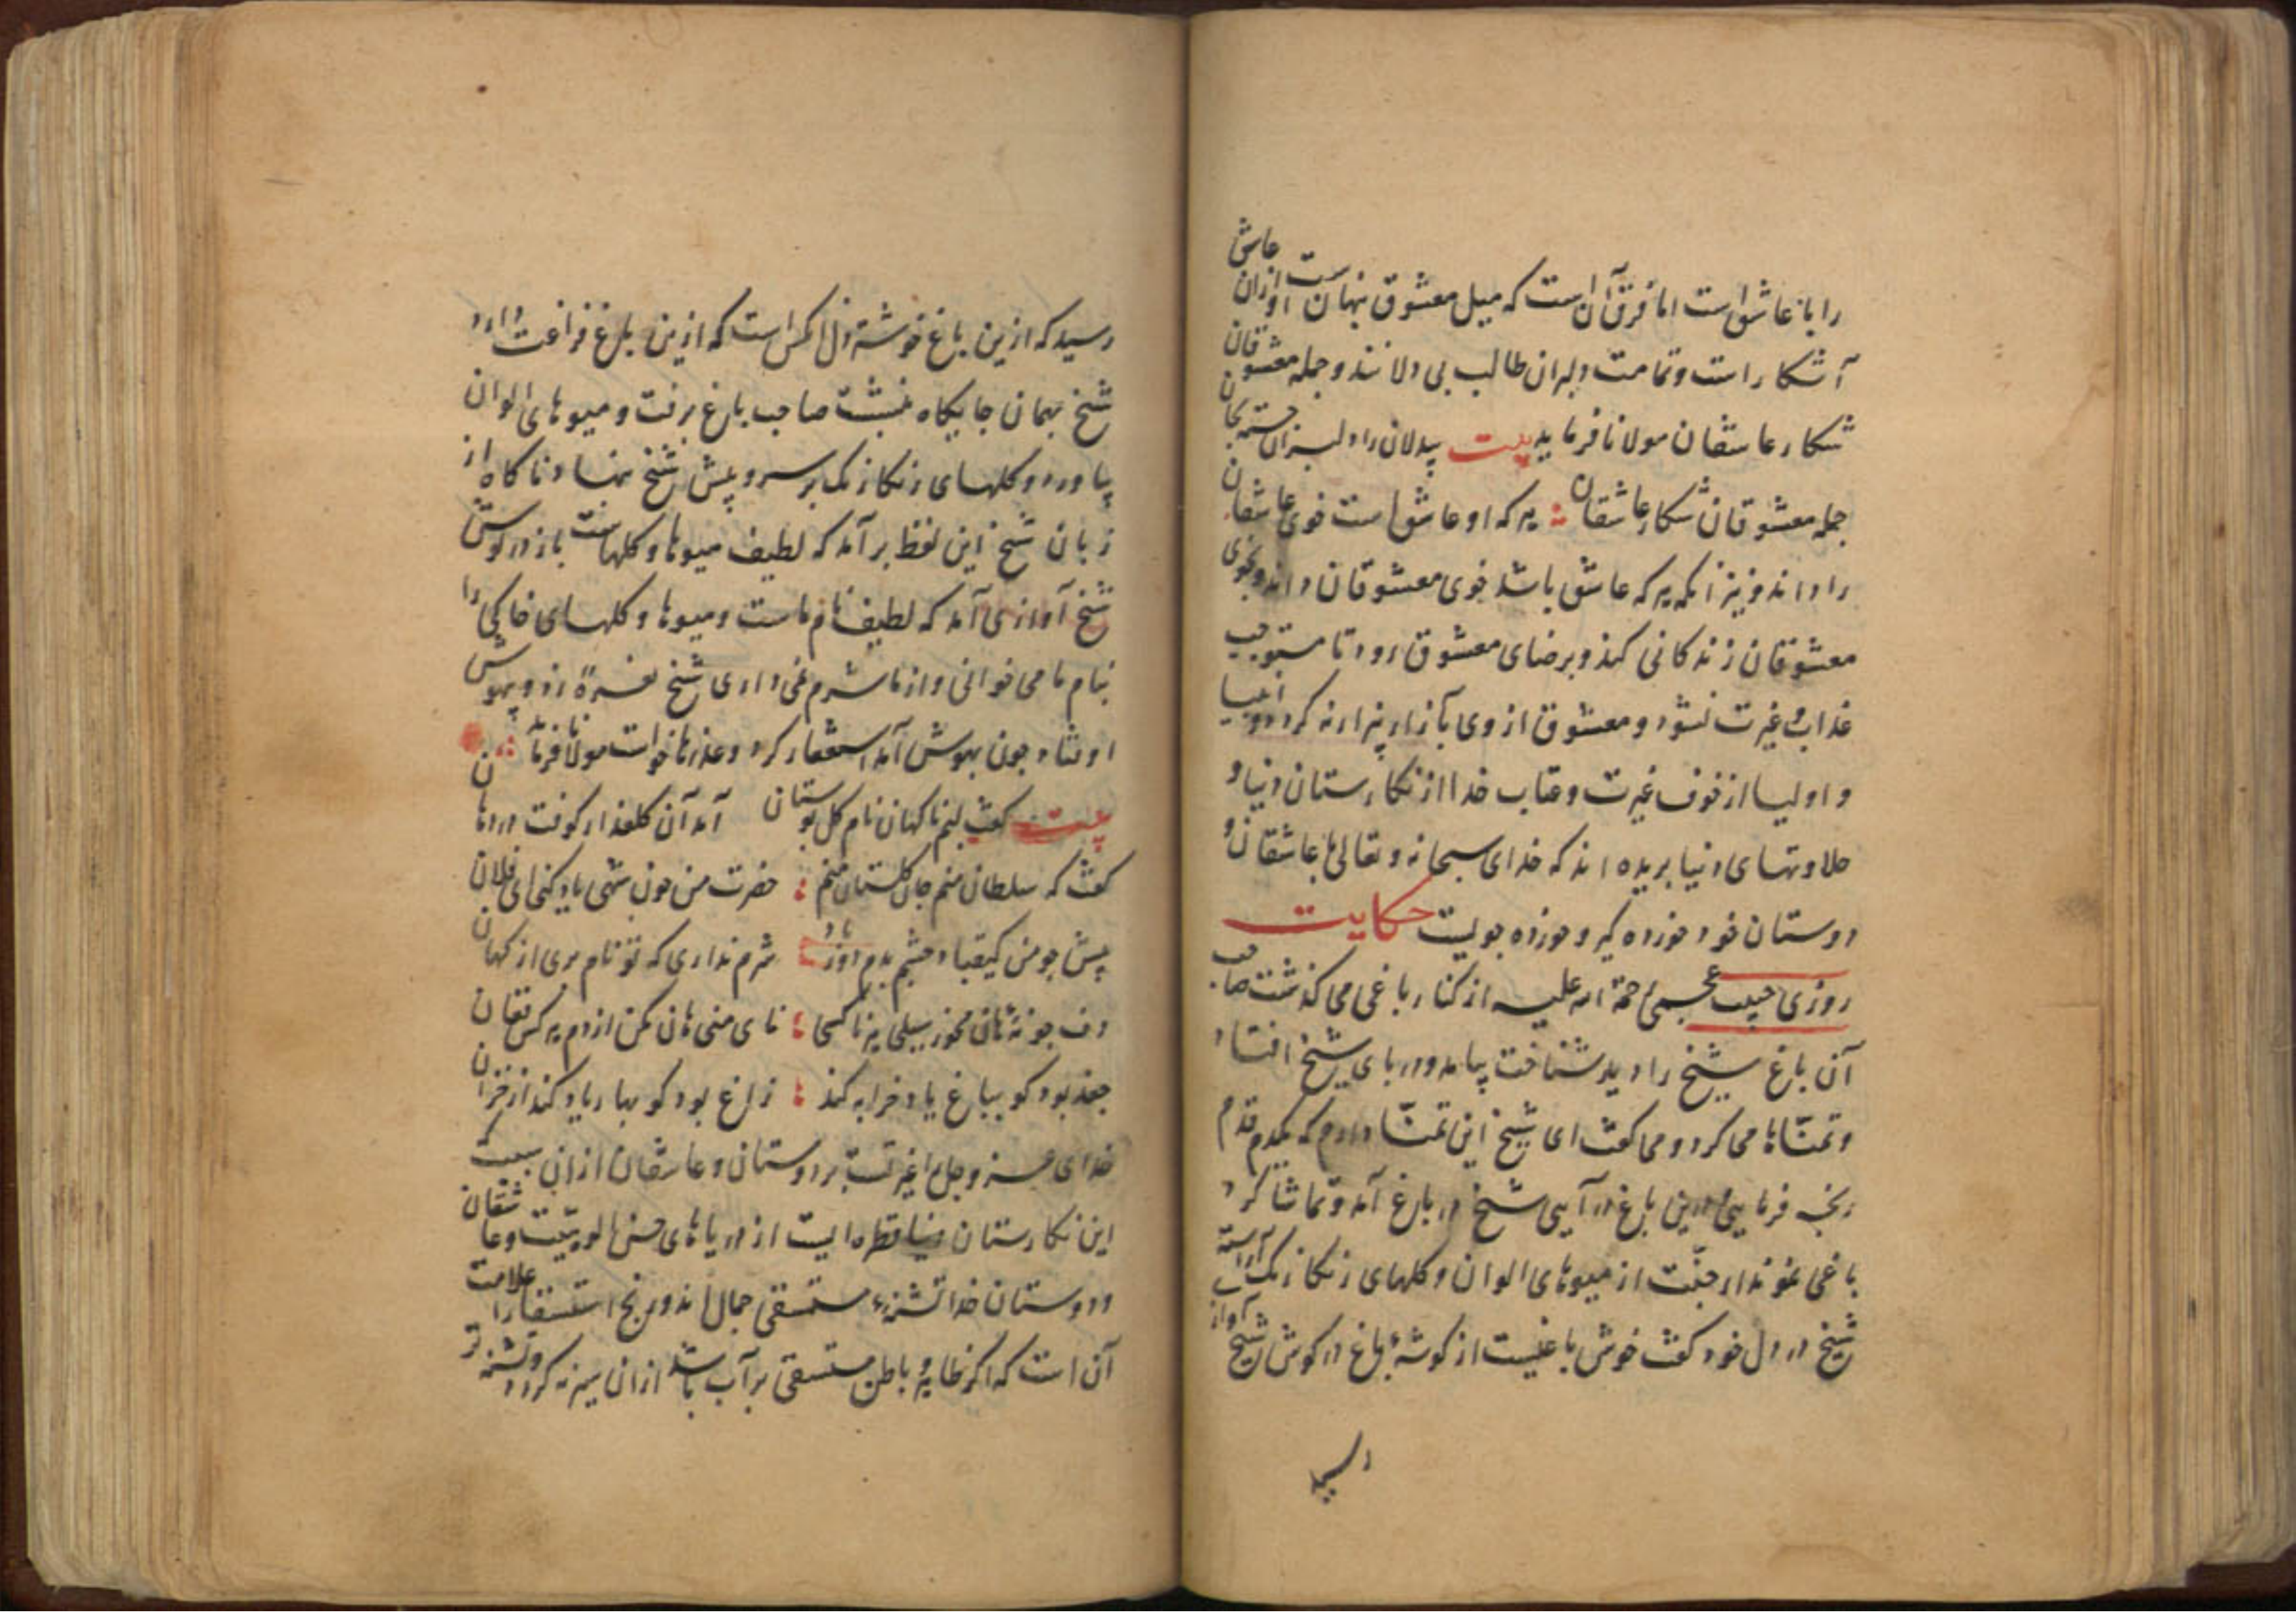 را با عاشق است اما فرق آن است که میل معشوق نهانست از ان عاشق
آشکار است و تمامت دلبران طالب بی دلانند و جمله معشوقان
شکار عاشقان مولانا فرماید بیت بیدلان را دلبران جسته بجان
جمله معشوقان شکار عاشقان هر که او عاشق است خوی عاشقان
را داند و نیز انکه هر که عاشق باشد خوی معشوقان داند و بخوی
معشوقان زندکانی کند و برضای معشوق رود تا مستوجب
عذاب و غیرت نشود و معشوق از وی بآزار بیزار نه کردد و انبیا
و اولیا از خوف غیرت و عتاب خدا از نکارستان دنیا و
حلاوتهای دنیا بریده اند که خدای سبحانه و تعالی با عاشقان و
دوستان خود خورده کیر و خورده جویست حکایت
روزی حبیب عجمی رحمة الله علیه از کنار باغی می کذشت صاحب
آن باغ شیخ را دید شناخت بیامد و در پای شیخ افتاد
و تمنّاها می کرد و می کفت ای شیخ این تمنّا دارم که یکدم قدم
رنجه فرمایی درین باغ در آیی شیخ در باغ آمد و تماشا کرد
باغی نمودار جنّت از میوهای الوان و کلهای رنکارنک آراسته
شیخ در دل خود کفت خوش باغیست از کوشۀ باغ در کوش شیخ آواز
رسید
رسید که ازین باغ خوشتر دل آکس است که ازین باغ فراغت دارد
شیخ بهمان جایکاه بنشست صاحب باغ برفت و میوهای الوان
بیاورد و کلهای رنکارنک بر سر و پیش شیخ بنهاد ناکاه از
زبان شیخ این لفظ بر آمد که لطیف میوها و کلهاست باز در کوش
شیخ آوازی آمد که لطیف نام ماست و میوها و کلهای خاکی را
بنام ما می خوانی و از ما شرم نمی داری شیخ نعرۀ زد و بیهوش
اوفتاد چون بهوش آمد استغفار کرد و عذرها خواست مولانا فرماید
بیت کفت لبم ناکهان نام کل بوستان آمد آن کلعذار کوفت در دهان
کفت که سلطان منم جان کلستان منم حضرت من چون شهی یاد کنی ای فلان
پیش چو من کیقباد چشم بدم دور باد شرم نداری که تو نام بری از کهان
دف چو نۀ هان مخور سیلی هر ناکسی نای منی هان مکن از دم هر کس فغان
جغد بود کو بباغ یاد خرابه کند زاغ بود کو بهار یاد کند از خزان
خدای عزّ و جل را غیرتست بر دوستان و عاشقان ازان سبب
این نکارستان دنیا قطره ایست از دریاهای حسن الوهیّت و عاشقان
و دوستان خدا تشنۀ مستسقی جمال اند و رنج استسقا را علامت
آن است که اکر ظاهر و باطن مستسقی پر آب باشد ازان سیر نه کردد و تشنه تر